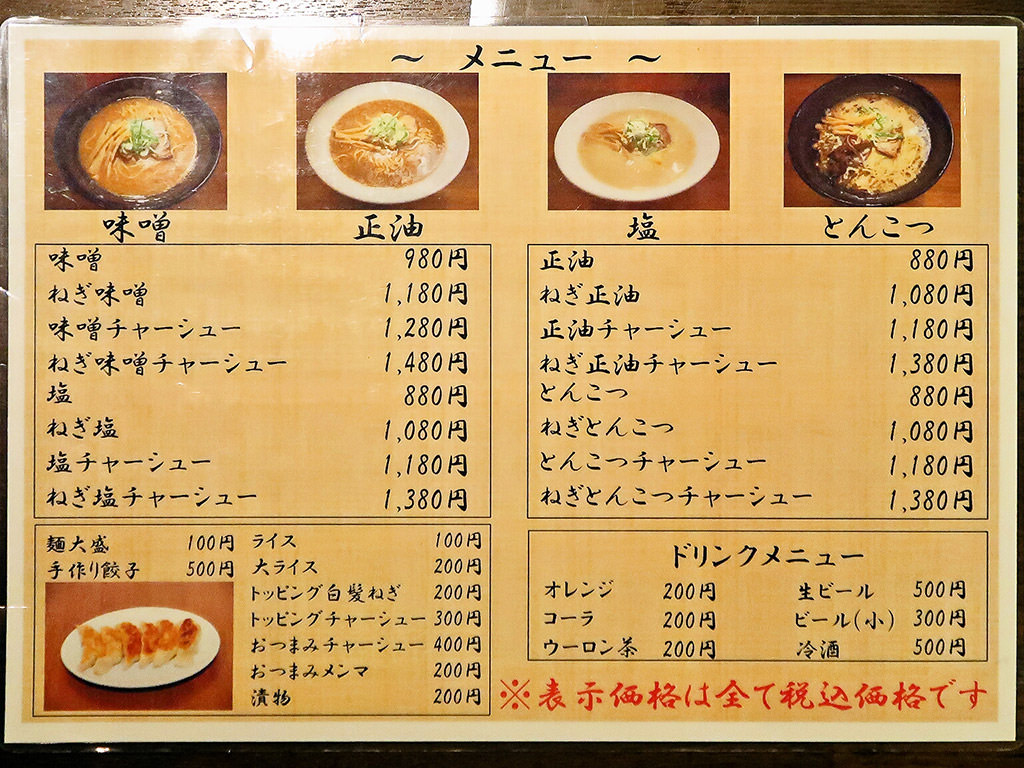 ～ メニュー ～
味噌 正油 塩 とんこつ
味噌 980円
ねぎ味噌 1,180円
味噌チャーシュー 1,280円
ねぎ味噌チャーシュー 1,480円
塩 880円
ねぎ塩 1,080円
塩チャーシュー 1,180円
ねぎ塩チャーシュー 1,380円
正油 880円
ねぎ正油 1,080円
正油チャーシュー 1,180円
ねぎ正油チャーシュー 1,380円
とんこつ 880円
ねぎとんこつ 1,080円
とんこつチャーシュー 1,180円
ねぎとんこつチャーシュー 1,380円
麺大盛 100円
手作り餃子 500円
ライス 100円
大ライス 200円
トッピング白髪ねぎ 200円
トッピングチャーシュー 300円
おつまみチャーシュー 400円
おつまみメンマ 200円
漬物 200円
ドリンクメニュー
オレンジ 200円
コーラ 200円
ウーロン茶 200円
生ビール 500円
ビール(小) 300円
冷酒 500円
※表示価格は全て税込価格です